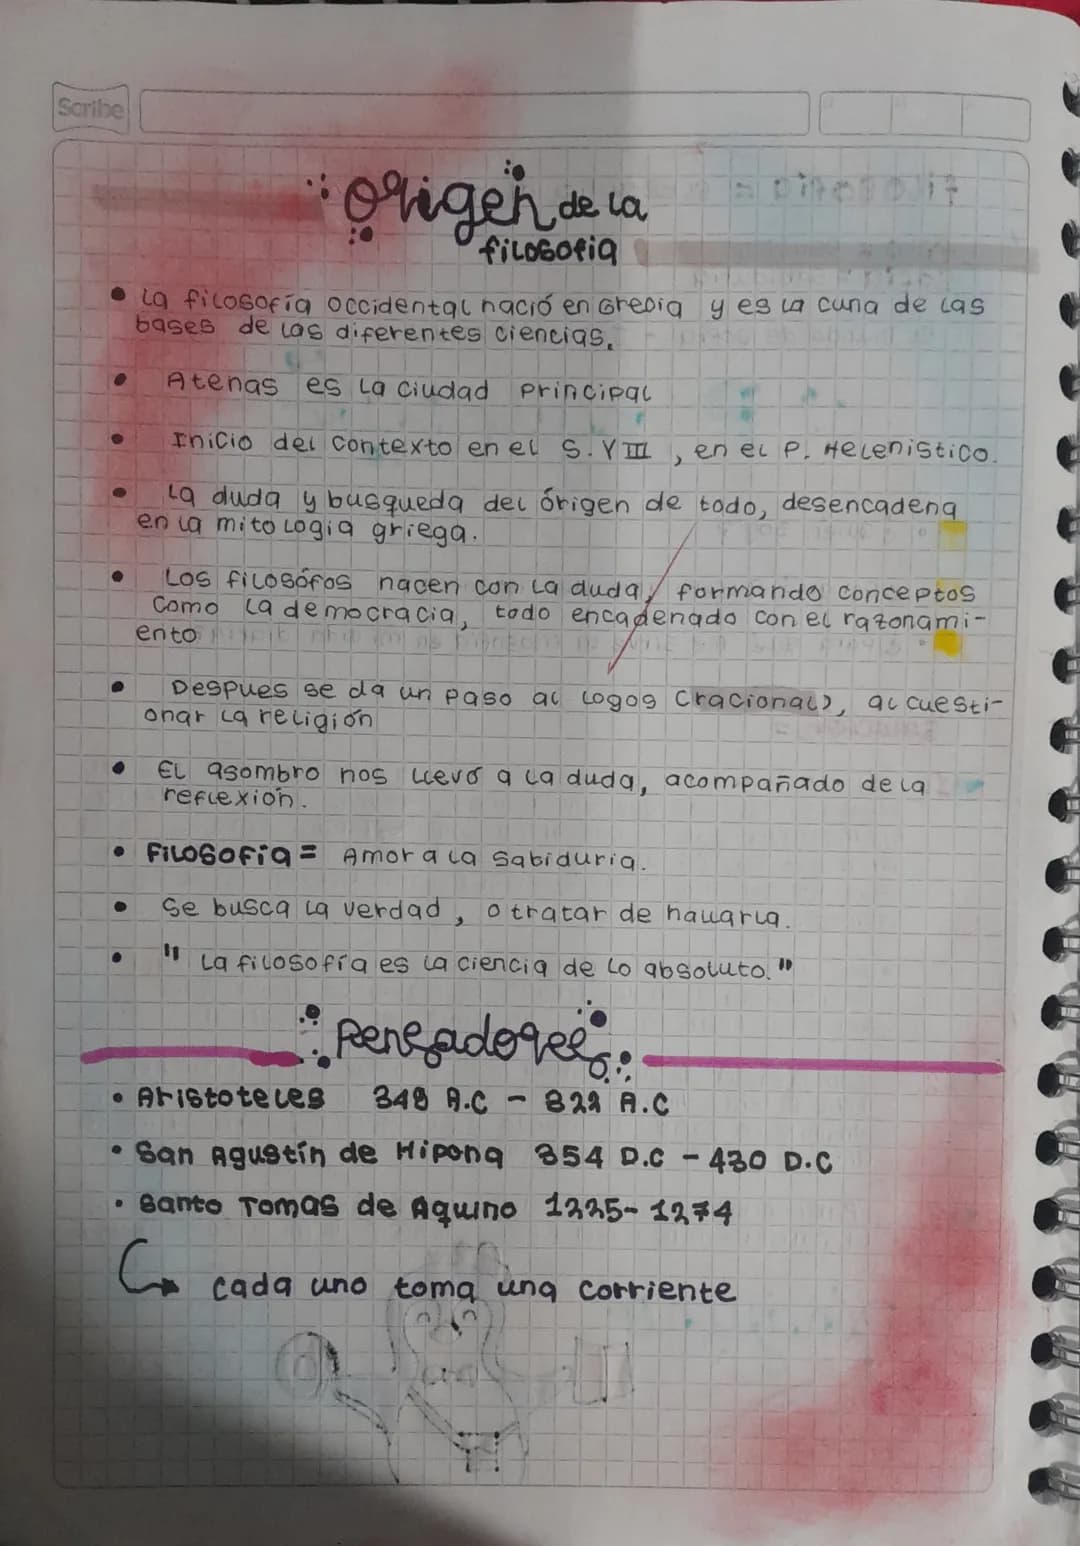 Scribe
Origen de la
filosofia
• La filosofía occidental nació en Grecia y es la cuna de las
bases de las diferentes ciencias.
• Atenas es la ciudad principal
• Inicio del contexto en el S. VIII, en el P. Helenistico.
• La duda y busqueda del órigen de todo, desencadena
en la mitologia griega.
• Los filosófos nacen con la duda, formando conceptos
como la democracia, todo encadenado con el razonami-
ento
• Despues se da un paso al logos (racional), al cuesti-
onar la religión
• El asombro nos llevó a la duda, acompañado de la
reflexión.
• Filosofía = Amor a la sabiduria.
• Se busca la verdad, o tratar de hallarla.
• " La filosofía es la ciencia de lo absoluto. "
Pensadores
• Aristoteles 348 A.C - 322 A.C
• San Agustín de Hipona 354 D.C - 430 D.C
• Santo Tomas de Aquino 1225-1274
cada uno toma una corriente